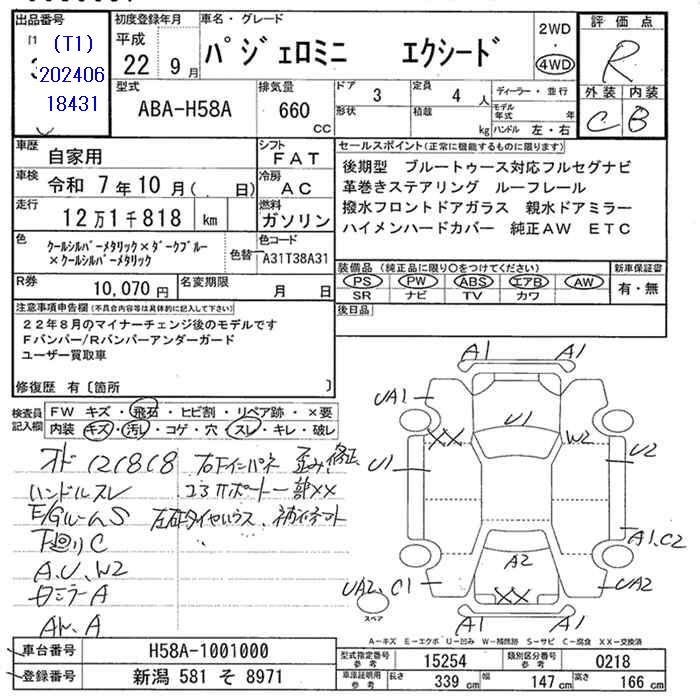 出品番号
(T1)
202406
18431
初度登録年月
平成
22年9月
車名・グレード
パジェロミニ エクシード
2WD
・
4WD
評価点
R
外装 内装
C B
型式
ABA-H58A
排気量
660
CC
ドア 3
形状
定員 4 人
積載 kg
ディーラー・並行
モデル年式 年
ハンドル 左・右
車歴
自家用
シフト
FAT
車検
令和 7年10月( 日)
冷房
AC
走行
12万1千818 km
燃料
ガソリン
色
クールシルバーメタリック×ダークブルー
×クールシルバーメタリック
色替
色コード
A31T38A31
R券
10,070 円
名変期限
月 日
セールスポイント(正常に機能するものに限ります)
後期型 ブルートゥース対応フルセグナビ
革巻きステアリング ルーフレール
撥水フロントドアガラス 親水ドアミラー
ハイメンハードカバー 純正AW ETC
装備品(純正品に限り○をつけてください)
PS PW ABS エアB AW
SR ナビ TV カワ
新車保証書
有・無
後日品
注意事項申告欄(不具合内容等は具体的に記入して下さい)
22年8月のマイナーチェンジ後のモデルです
Fバンパー/Rバンパーアンダーガード
ユーザー買取車
修復歴 有〔箇所 〕
検査員
記入欄
FW キズ・飛石・ヒビ割・リペア跡・×要
内装 キズ・汚レ・コゲ・穴・スレ・キレ・破レ
オド 121818
ハンドルスレ
E/GルームS
下回りC
A、U、W2
右下インパネ 歪み、修正
コアサポート一部××
A1 A1
UA1
U1
XX
W2
U1
U2
A1、C2
A2
UA2、C1
XX
UA2
A1 A1
スペア
A-キズ E-エクボ U-凹み W-補修跡 S-サビ C-腐食 XX-交換済
車台番号
H58A-1001000
登録番号
新潟 581 そ 8971
型式指定番号
参考
15254
類別区分番号
参考
0218
車庫証明用
参考
長さ 339 cm
幅 147 cm
高さ 166 cm